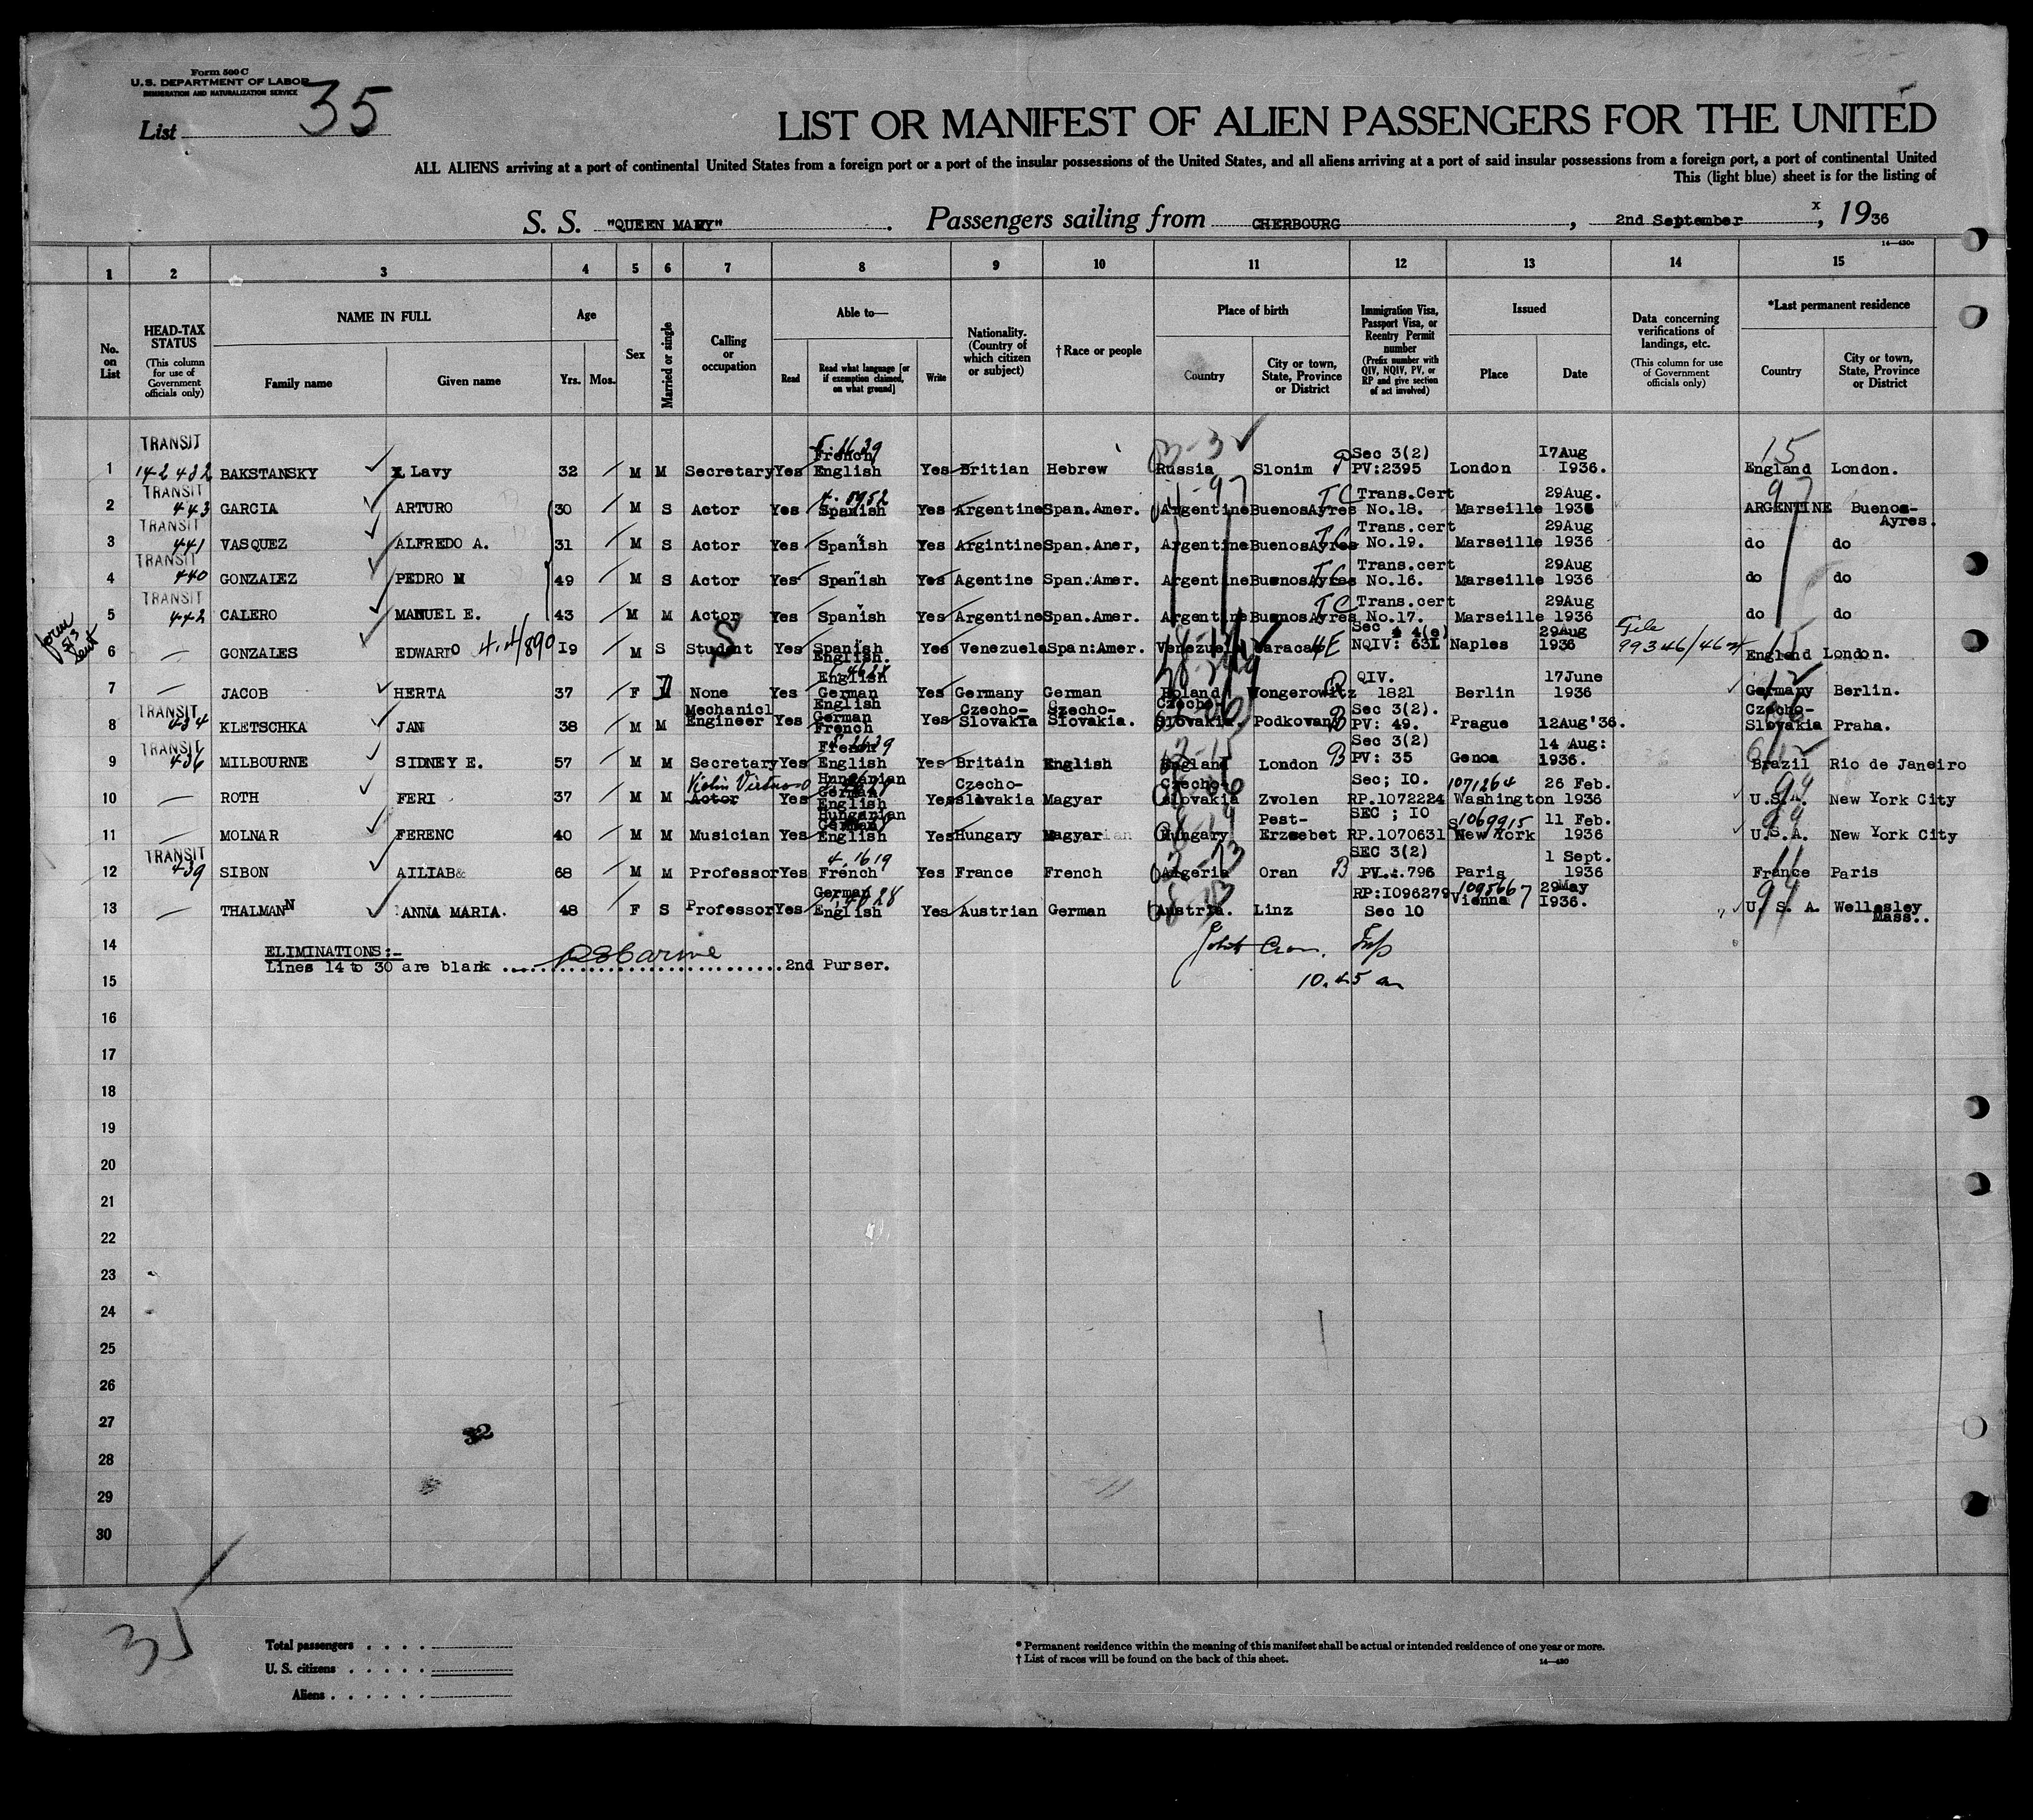 Form 500 C
U.S. DEPARTMENT OF LABOR
IMMIGRATION AND NATURALIZATION SERVICE
List 35
LIST OR MANIFEST OF ALIEN PASSENGERS FOR THE UNITED
ALL ALIENS arriving at a port of continental United States from a foreign port or a port of the insular possessions of the United States, and all aliens arriving at a port of said insular possessions from a foreign port, a port of continental United
This (light blue) sheet is for the listing of
S. S. "QUEEN MARY". Passengers sailing from CHERBOURG, 2nd September x, 1936
14—430c
1 2 3 4 5 6 7 8 9 10 11 12 13 14 15
No. on List
HEAD-TAX STATUS (This column for use of Government officials only)
NAME IN FULL Family name Given name
Age Yrs. Mos.
Sex
Married or single
Calling or occupation
Able to— Read Read what language [or if exemption claimed, on what ground] Write
Nationality. (Country of which citizen or subject)
†Race or people
Place of birth Country City or town, State, Province or District
Immigration Visa, Passport Visa, or Reentry Permit number (Prefix number with QIV, NQIV, PV, or RP and give section of act involved)
Issued Place Date
Data concerning verifications of landings, etc. (This column for use of Government officials only)
*Last permanent residence Country City or town, State, Province or District
1 TRANSIT 142 432 BAKSTANSKY Lavy 32 M M Secretary Yes French English Yes Britian Hebrew Russia Slonim Sec 3(2) PV:2395 London 17Aug 1936. 15 England London.
2 TRANSIT 443 GARCIA ARTURO 30 M S Actor Yes Spanish Yes Argentine Span.Amer. Argentine BuenosAyres TC Trans.Cert No.18. Marseille 29Aug. 1936 97 ARGENTINE Buenos-Ayres.
3 TRANSIT 441 VASQUEZ ALFREDO A. 31 M S Actor Yes Spanish Yes Argintine Span.Aner, Argentine BuenosAyres TC Trans.cert No.19. Marseille 29Aug 1936 do do
4 TRANSIT 440 GONZALEZ PEDRO M 49 M S Actor Yes Spanish Yes Agentine Span.Amer. Argentine BuenosAyres TC Trans.cert No.16. Marseille 29Aug 1936 do do
5 TRANSIT 442 CALERO MANUEL E. 43 M M Actor Yes Spanish Yes Argentine Span.Amer. Argentine BuenosAyres TC Trans.cert No.17. Marseille 29Aug 1936 do do
form 513 sent
6 — GONZALES EDWARDO 4.4/890 19 M S Student S Yes Spanish English. Yes Venezuela Span:Amer. Venezuela Caracas Sec 4(e) NQIV: 631 Naples 29Aug 1936 File 99346/46 England London.
7 — JACOB HERTA 37 F None Yes English German Yes Germany German Poland Wongerowitz QIV. 1821 Berlin 17June 1936 Germany Berlin.
8 TRANSIT 434 KLETSCHKA JAN 38 M M Mechanicl Engineer Yes English German French Yes Czecho-Slovakia Czecho-Slovakia. Czecho-Slovakia. Podkovan Sec 3(2). PV: 49. Prague 12Aug'36. Czecho-Slovakia Praha.
9 TRANSIT 436 MILBOURNE SIDNEY E. 57 M M Secretary Yes French English Yes Britain English England London B Sec 3(2) PV: 35 Genoa 14 Aug: 1936. Brazil Rio de Janeiro
10 — ROTH FERI 37 M M Violin Virtuoso Actor Yes Hungarian German English Yes Czecho-slovakia Magyar Czecho-slovakia Zvolen Sec; IO. RP.1072224 1071264 Washington 26 Feb. 1936 U.S.A. New York City
11 — MOLNAR FERENC 40 M M Musician Yes Hungarian German English Yes Hungary Magyar Hungary Pest-Erzsebet SEC ; IO RP.1070631 1069915 New York 11 Feb. 1936 U.S.A. New York City
12 TRANSIT 439 SIBON AILIAB& 68 M M Professor Yes 4.1619 French Yes France French Algeria Oran B SEC 3(2) PV.:.796 Paris 1 Sept. 1936 France Paris
13 — THALMANN ANNA MARIA. 48 F S Professor Yes German English Yes Austrian German Austria. Linz RP:I096279 Sec 10 1095667 Vienna 29May 1936. U. S. A. Wellesley Mass..
14 ELIMINATIONS:-
Lines 14 to 30 are blank ........ 2nd Purser.
15 10.45 am
16
17
18
19
20
21
22
23
24
25
26
27
32
28
29
30
35
Total passengers . . . .
U. S. citizens . . . . .
Aliens . . . . . .
* Permanent residence within the meaning of this manifest shall be actual or intended residence of one year or more.
† List of races will be found on the back of this sheet.
14—430